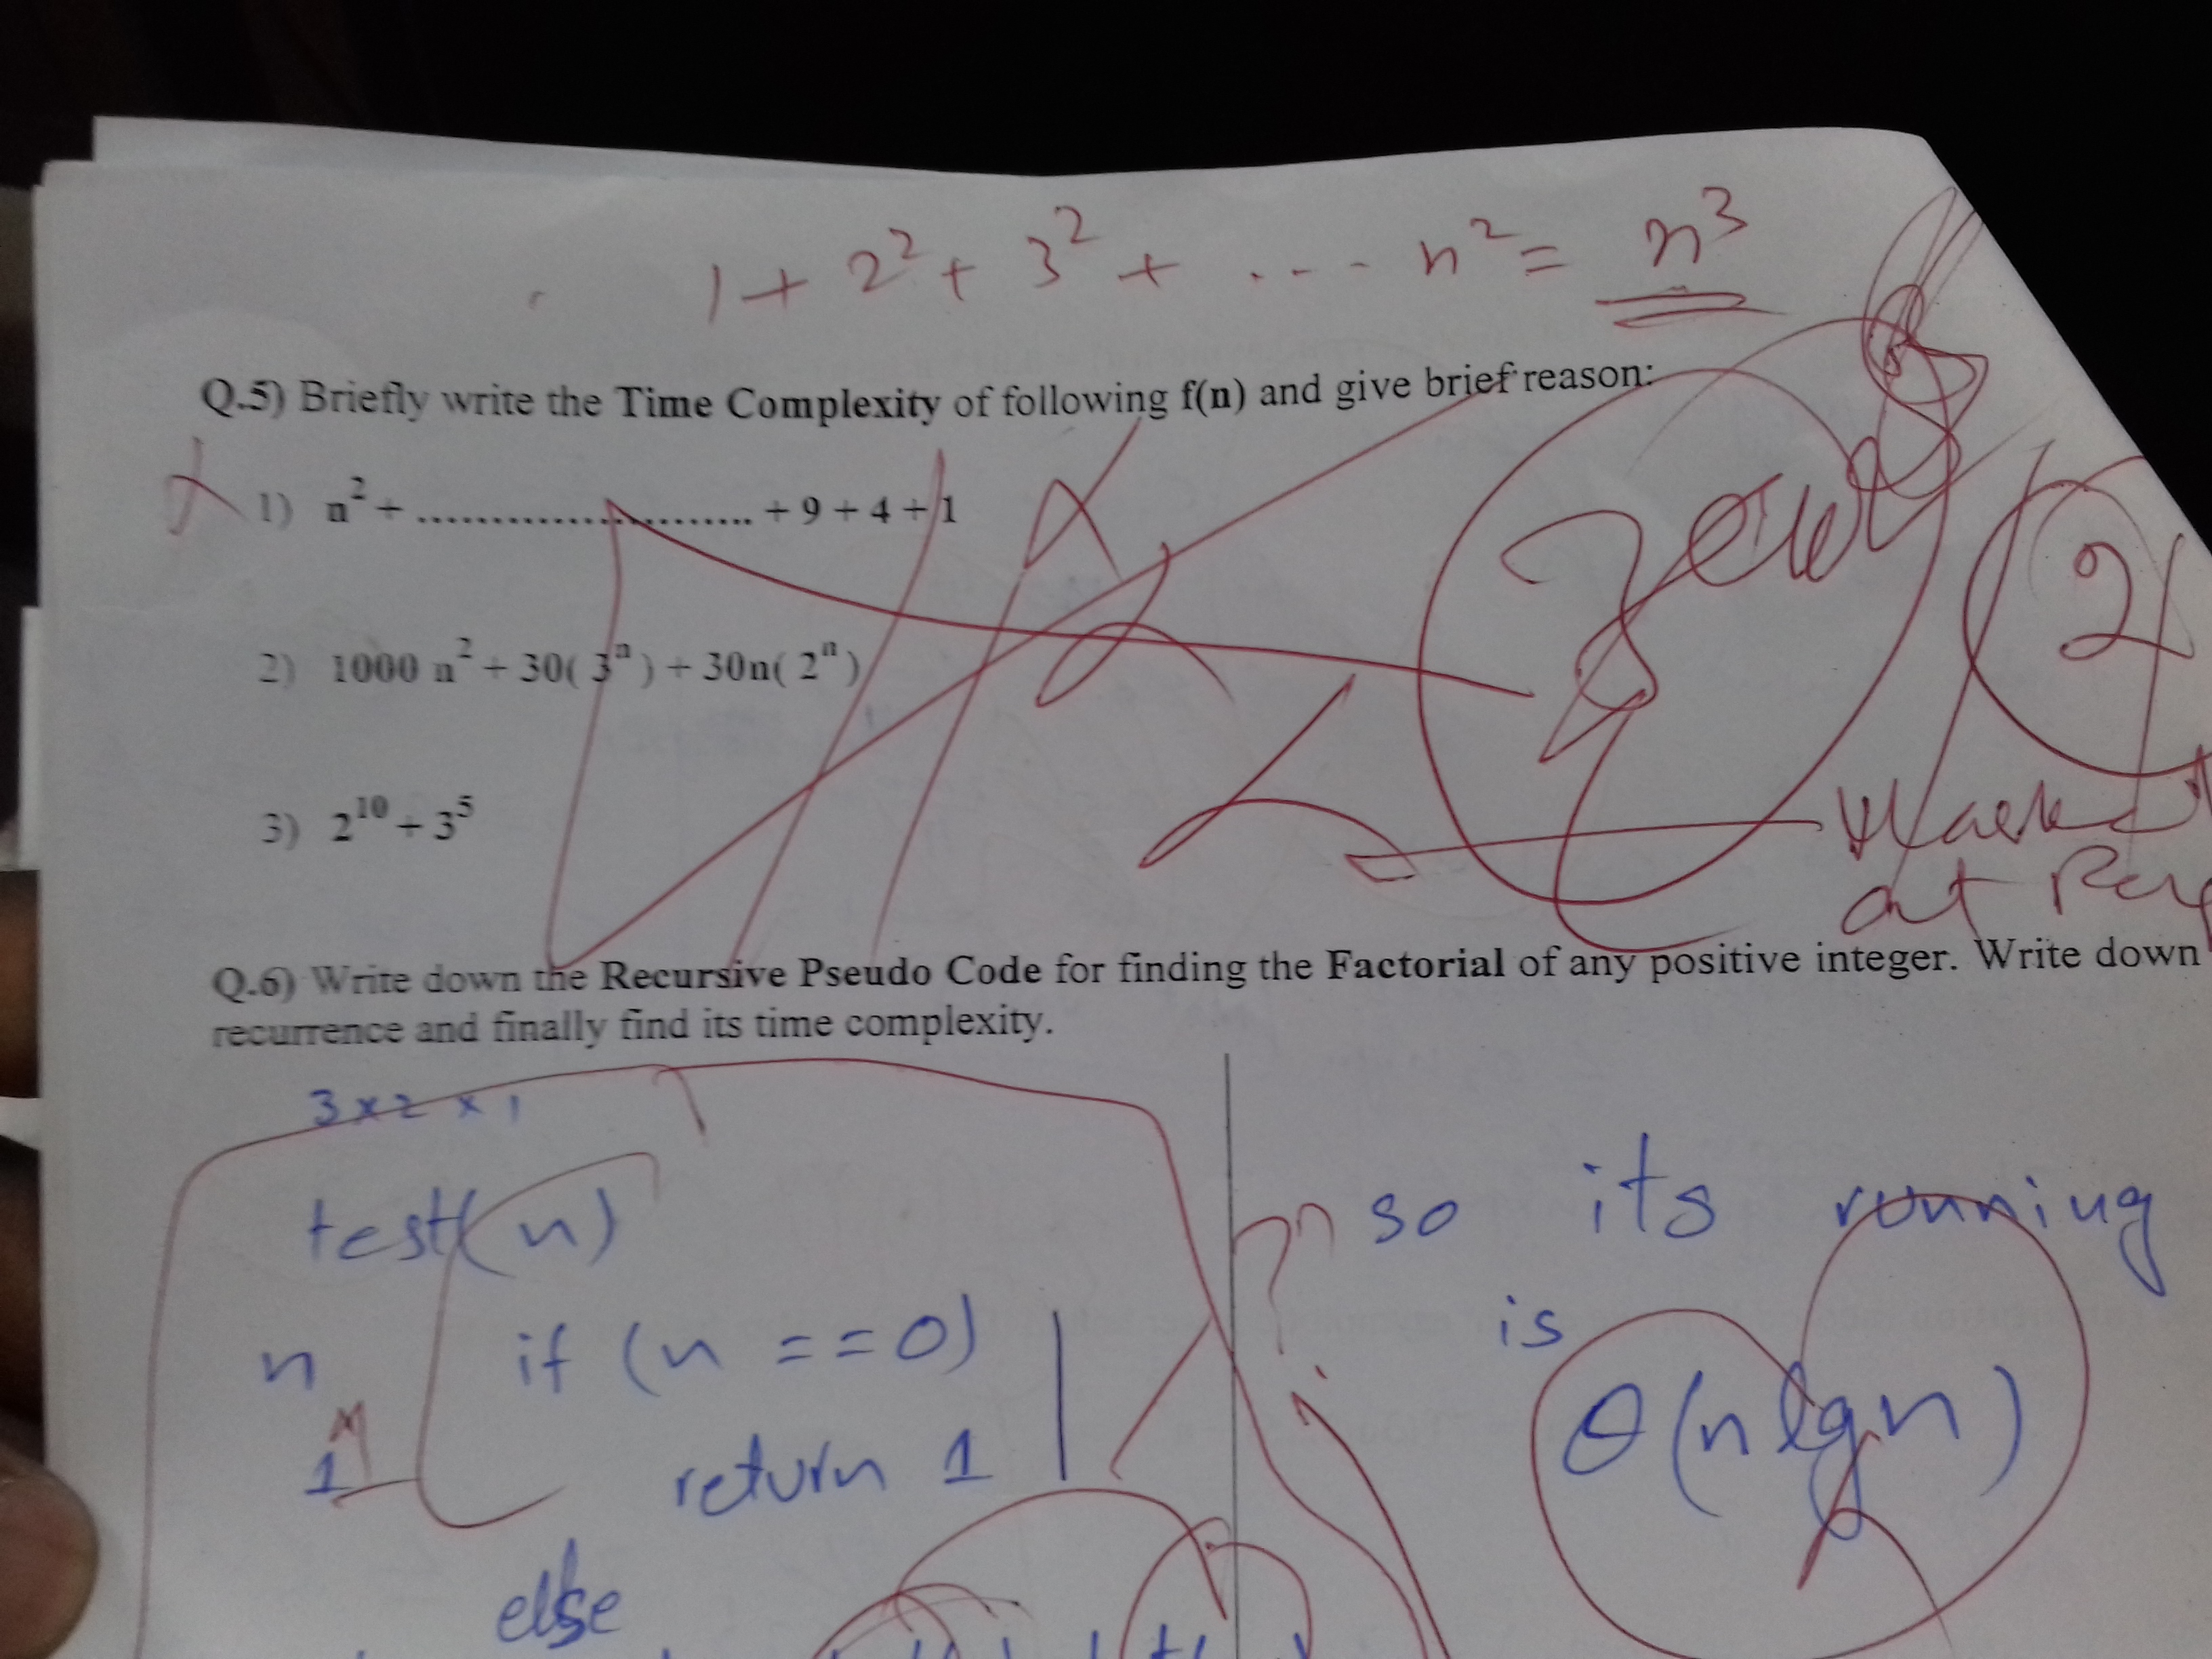 1 + 2² + 3² + .... n² = n³
Q.5) Briefly write the Time Complexity of following f(n) and give brief reason:
1) n² + ............................ + 9 + 4 + 1
2) 1000 n² + 30( 3ⁿ ) + 30n( 2ⁿ )
3) 2¹⁰ + 3⁵
at
Q.6) Write down the Recursive Pseudo Code for finding the Factorial of any positive integer. Write down
recurrence and finally find its time complexity.
3 x 2 x 1
test(n)
so its running
n if (n == 0)
is
1 return 1
θ(n lgn)
else